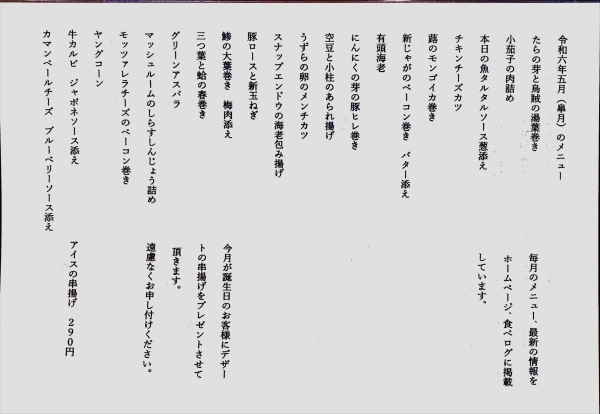 令和六年五月（皐月）のメニュー
たらの芽と烏賊の湯葉巻き
小茄子の肉詰め
本日の魚タルタルソース葱添え
チキンチーズカツ
蕗のモンゴイカ巻き
新じゃがのベーコン巻き　バター添え
有頭海老
にんにくの芽の豚ヒレ巻き
空豆と小柱のあられ揚げ
うずらの卵のメンチカツ
スナップエンドウの海老包み揚げ
豚ロースと新玉ねぎ
鯵の大葉巻き　梅肉添え
三つ葉と蛤の春巻き
グリーンアスパラ
マッシュルームのしらすしんじょう詰め
モッツァレラチーズのベーコン巻き
ヤングコーン
牛カルビ　ジャポネソース添え
カマンベールチーズ　ブルーベリーソース添え
毎月のメニュー、最新の情報を
ホームページ、食べログに掲載
しています。
今月が誕生日のお客様にデザー
トの串揚げをプレゼントさせて
頂きます。
遠慮なくお申し付けください。
アイスの串揚げ　290円